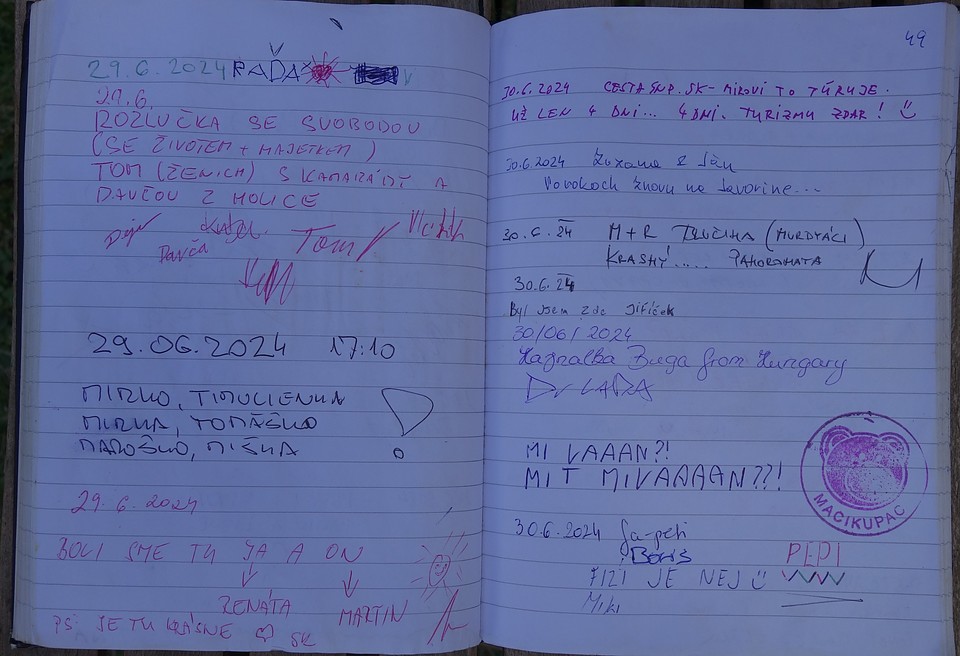 29.6.2024 RAĎA
29.6.
ROZLUČKA SE SVOBODOU
(SE ŽIVOTEM + MAJETKEM)
TOM (ŽENICH) S KAMARÁDY A
DAVČOU Z HOLICE
Davča Tom
29.06.2024 17:10
MIRKO, TIMULIENKA
MIRKA, TOMÁŠKO
MAROŠKO, MIŠKA
29.6.2024
BOLI SME TU JA A ON
RENÁTA MARTIN
PS: JE TU KRÁSNE ♡ SK
49
30.6.2024 CESTASNP.SK - MIROVI TO TÚRUJE.
UŽ LEN 4 DNI... 4 DNI. TURIZMU ZDAR! ☺
30.6.2024 Zuzana & Ján
Po rokoch znovu na Javorine...
30.6.24 M+R (HURDYÁCI)
KRASNÝ..... PANORAMATA
30.6.24
Byl jsem zde Jiříček
30/06/2024
Hajnalka Zuga from Hungary
Dr LADA
MI VAAAN?!
MIT MIVAAAAN??!
30.6.2024 Ga-peti
Boris PEPI
FIZI JE NEJ ☺
Miki
MACIKUPAC